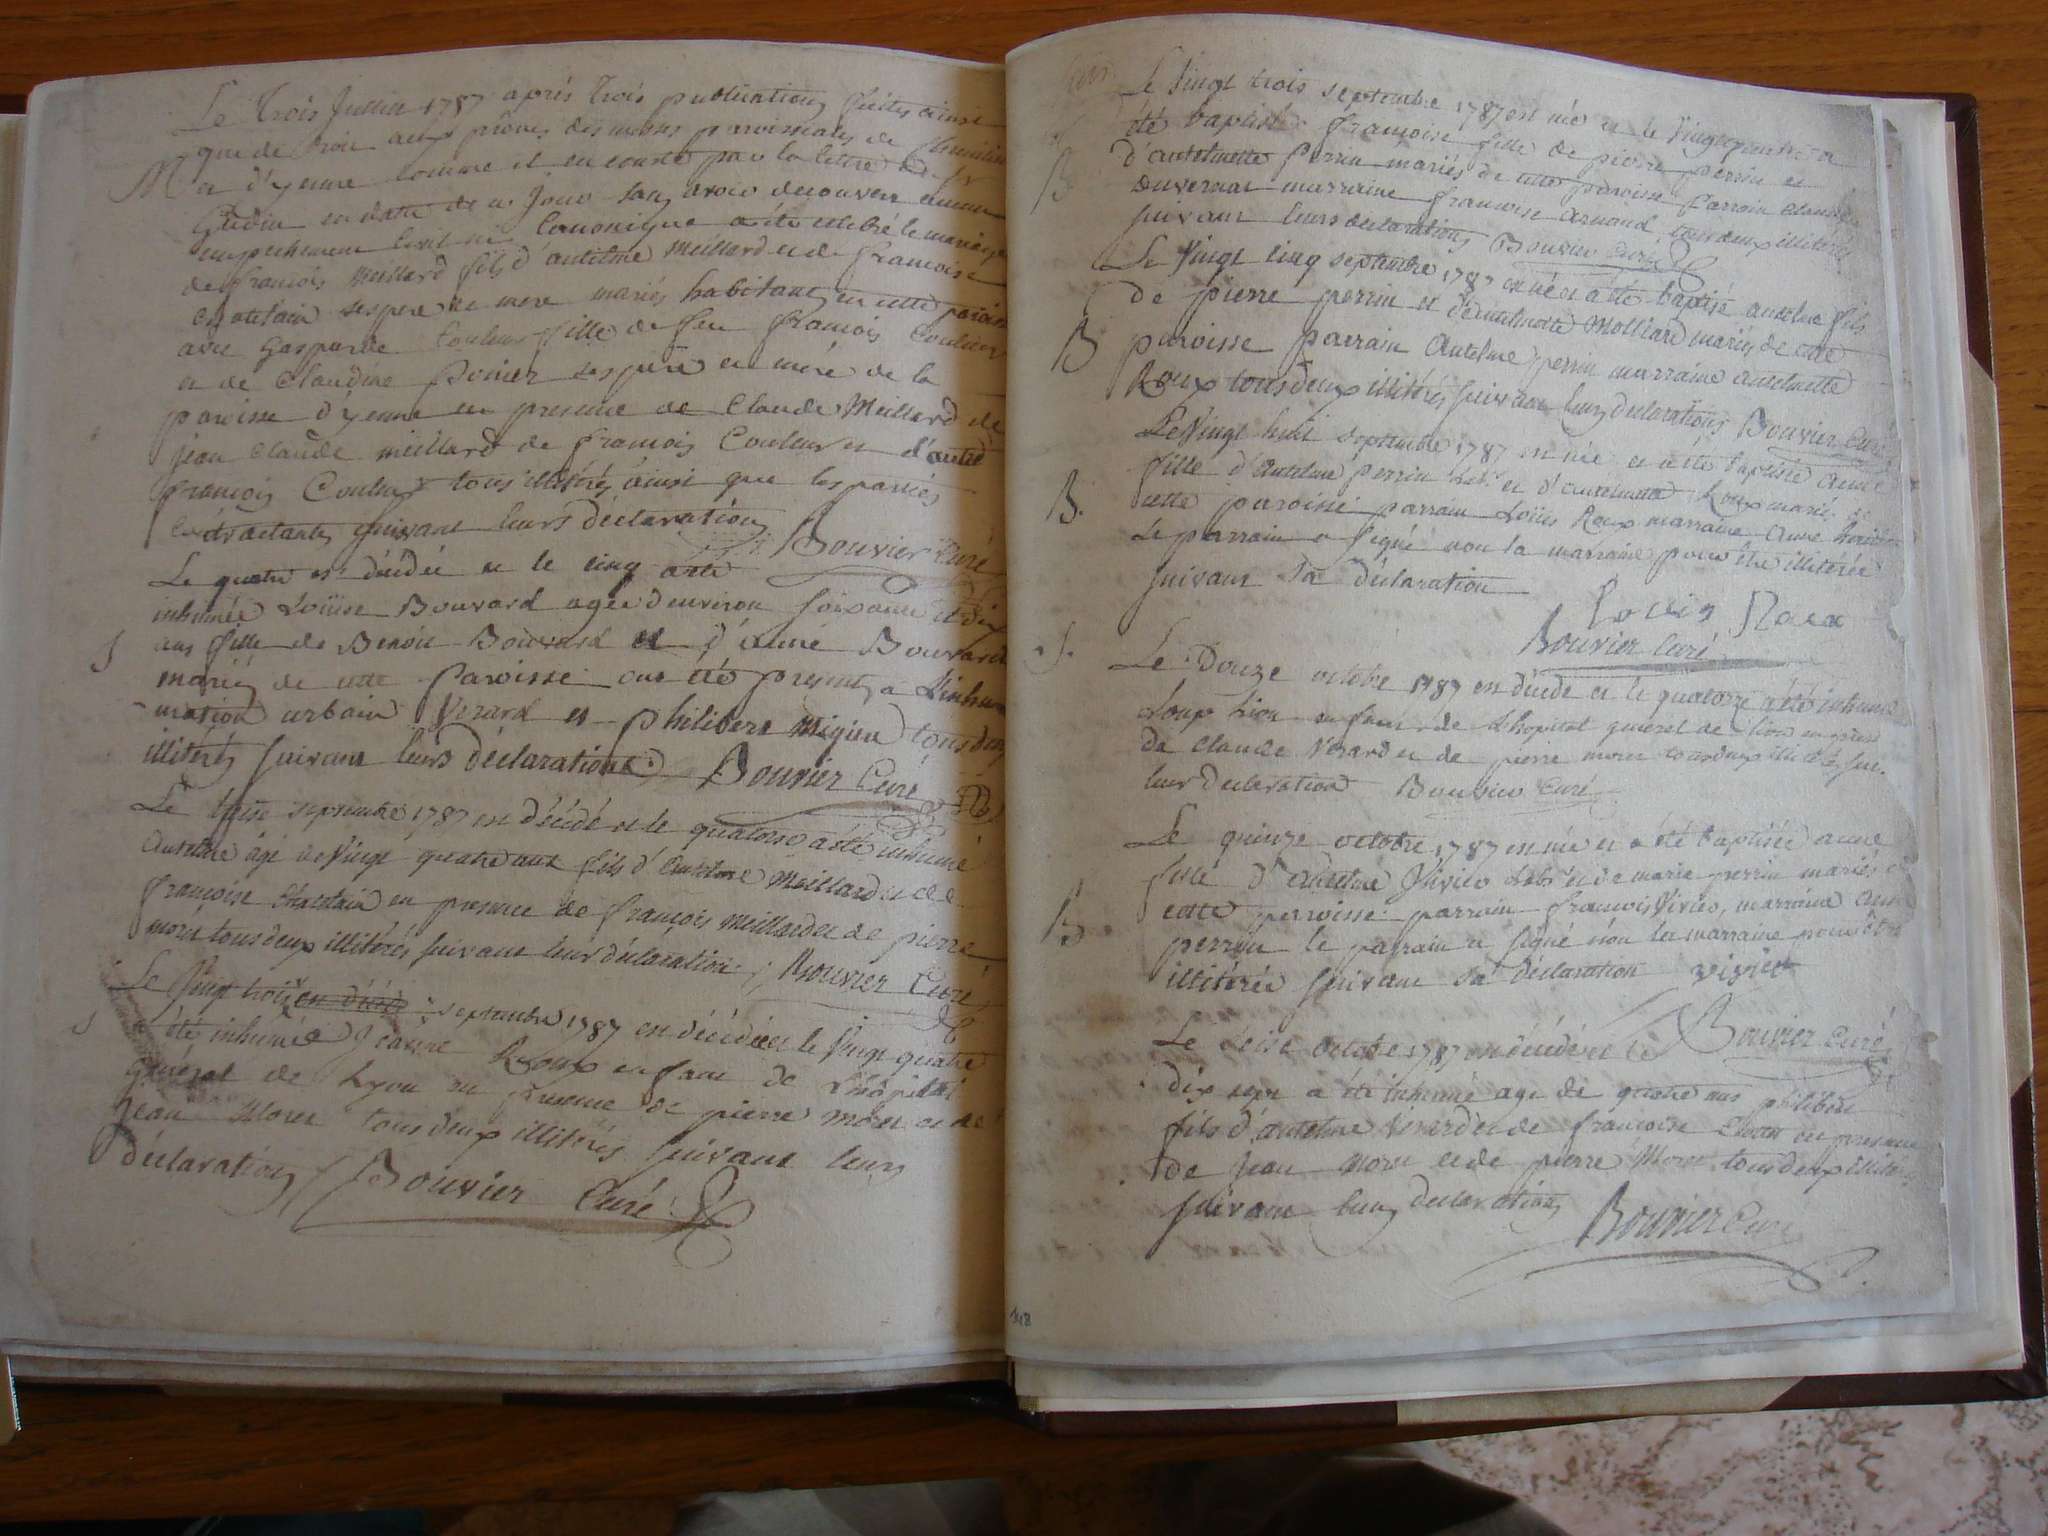 Le trois Juillet 1787 après trois publications faittes ainsi
que de droit aux prônes des messes paroissiales de
M et d'yenne comme il en conste par la lettre de Mr
en date de ce Jour sans avoir decouvert aucun
empechement Civil ni Canonique a été célébré le mariage
de françois Meillard fils d'antelme Meillard et de françoise
Chatelain ses pere et mere mariés habitants en cette paroisse
avec Gasparde Couleur fille de feu françois Couleur
et de Claudine Poncer ses père et mère de la
paroisse d'yenne en presence de Claude Meillard de
jean Claude meillard de françois Couleur et d'autre
françois Couleur tous illitérés ainsi que les parties
Contractantes suivant leurs déclarations Bouvier Curé
Le quatre est décédée et le cinq a été
inhumée Loüise Bouvard agée denviron soixante et dix
ans fille de Benoit Bouvard et d'anne Bouvard
S mariés de cette Paroisse ont été presents a L'inhu
mation urbain Verard et philibert Migieu tous deux
illitérés suivant leurs déclarations Bouvier Curé
Le treise septembre 1787 est décédé et le quatorse a été inhumé
Antelme âgé de vingt quatre ans fils d'antelme Meillard et de
françoise Chatelain en presence de françois Meillard et de pierre
moret tous deux illitérés suivant leur déclaration Bouvier Curé
Le vingt trois septembre 1787 est décédée et le vingt quatre
S a été inhumée Roux enfant de L'hôpital
Général de Lyon en presence de pierre moret et de
Jean Moret tous deux illitérés suivant leurs
déclarations Bouvier Curé
Le vingt trois septembre 1787 est née et le vingt quatre a
été baptisée françoise fille de pierre perrin et
B d'antelmette Perrin mariés de cette paroisse Parrain Claude
Duvernai marraine françoise Arnaud tous deux illitérés
suivant leurs déclarations Bouvier Curé
Le vingt cinq septembre 1787 est né et a été baptisé antelme fils
de pierre perrin et d'antelmette Molliard mariés de cette
B paroisse parrain Antelme perrin marraine antelmette
Roux tous deux illitérés suivant leurs déclarations Bouvier Curé
Le vingt huit septembre 1787 est née et a été baptisée Anne
fille d'Antelme Perrin Lab.r et d'antelmette Roux mariés de
B. cette paroisse parrain Loüis Roux marraine Anne
Le parrain a signé non la marraine pour être illitérée
suivant sa déclaration
Louis Roux
Bouvier Curé
S. Le Douze octobre 1787 est décédé et le quatorze a été inhumé
Loup Lion enfant de L'hopital général de lion en présence
de Claude Verard et de pierre moret tous deux illitérés sui.
leur déclaration Bouvier Curé
Le quinze octobre 1787 est née et a été baptisée anne
fille d'antelme Vivier Lab.r et de marie perrin mariés de
B cette paroisse parrain françois Vivier, marraine anne
perrin le parrain a signé non la marraine pour être
illitérée suivant sa déclaration vivier
Bouvier Curé
Le seise octobre 1787 est décédé et le
dix sept a été inhumé agé de quatre ans philibert
fils d'antelme Verard et de françoise en presence
de Jean Moret et de pierre Moret tous deux illité
suivant leurs déclarations
Bouvier Curé